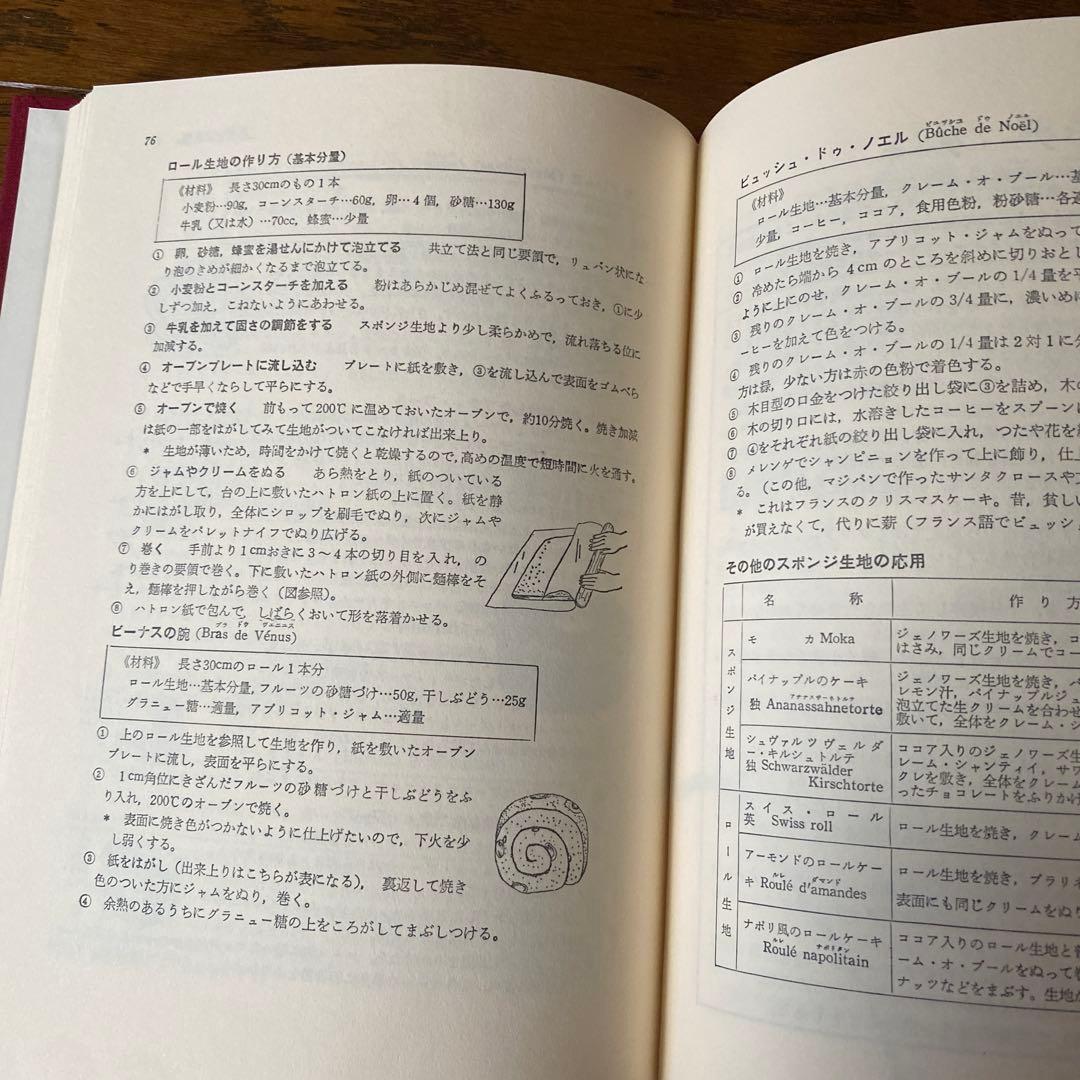 76
ロール生地の作り方（基本分量）
《材料》　長さ30cmのもの1本
小麦粉…90g, コーンスターチ…60g, 卵…4個, 砂糖…130g
牛乳（又は水）…70cc, 蜂蜜…少量
① 卵, 砂糖, 蜂蜜を湯せんにかけて泡立てる　共立て法と同じ要領で, リュバン状にな
り泡のきめが細かくなるまで泡立てる。
② 小麦粉とコーンスターチを加える　粉はあらかじめ混ぜてよくふるっておき, ①に少
しずつ加え, こねないようにあわせる。
③ 牛乳を加えて固さの調節をする　スポンジ生地より少し柔らかめで, 流れ落ちる位に
加減する。
④ オーブンプレートに流し込む　プレートに紙を敷き, ③を流し込んで表面をゴムベら
などで手早くならして平らにする。
⑤ オーブンで焼く　前もって200℃に温めておいたオーブンで, 約10分焼く。焼き加減
は紙の一部をはがしてみて生地がついてこなければ出来上り。
* 生地が薄いため, 時間をかけて焼くと乾燥するので, 高めの温度で短時間に火を通す。
⑥ ジャムやクリームをぬる　あら熱をとり, 紙のついている
方を上にして, 台の上に敷いたハトロン紙の上に置く。紙を静
かにはがし取り, 全体にシロップを刷毛でぬり, 次にジャムや
クリームをパレットナイフでぬり広げる。
⑦ 巻く　手前より1cmおきに3〜4本の切り目を入れ, の
り巻きの要領で巻く。下に敷いたハトロン紙の外側に麺棒をそ
え, 麺棒を押しながら巻く（図参照）。
⑧ ハトロン紙で包んで, しばらくおいて形を落着かせる。
ブラ ドゥ ヴェニュス
ビーナスの腕 (Bras de Vénus)
《材料》　長さ30cmのロール1本分
ロール生地…基本分量, フルーツの砂糖づけ…50g, 干しぶどう…25g
グラニュー糖…適量, アプリコット・ジャム…適量
① 上のロール生地を参照して生地を作り, 紙を敷いたオーブン
プレートに流し, 表面を平らにする。
② 1cm角位にきざんだフルーツの砂糖づけと干しぶどうをふ
り入れ, 200℃のオーブンで焼く。
* 表面に焼き色がつかないように仕上げたいので, 下火を少
し弱くする。
③ 紙をはがし（出来上りはこちらが表になる）, 裏返して焼き
色のついた方にジャムをぬり, 巻く。
④ 余熱のあるうちにグラニュー糖の上をころがしてまぶしつける。
ビュッシュ ドゥ ノエル
ビュッシュ・ドゥ・ノエル (Bûche de Noël)
《材料》
ロール生地…基本分量, クレーム・オ・ブール…基
少量, コーヒー, ココア, 食用色粉, 粉砂糖…各適
① ロール生地を焼き, アプリコット・ジャムをぬって
② 冷めたら端から4cmのところを斜めに切りおとし
ように上にのせ, クレーム・オ・ブールの1/4量を平
③ 残りのクレーム・オ・ブールの3/4量に, 濃いめに
ーヒーを加えて色をつける。
④ 残りのクレーム・オ・ブールの1/4量は2対1に分
方は緑, 少ない方は赤の色粉で着色する。
⑤ 木目型の口金をつけた絞り出し袋に③を詰め, 木の
⑥ 木の切り口には, 水溶きしたコーヒーをスプーンに
⑦ ④をそれぞれ紙の絞り出し袋に入れ, つたや花を絞
⑧ メレンゲでシャンピニョンを作って上に飾り, 仕上
る。（この他, マジパンで作ったサンタクロースやツ
* これはフランスのクリスマスケーキ。昔, 貧しい
が買えなくて, 代りに薪（フランス語でビュッシ
その他のスポンジ生地の応用
名　称　作り方
スポンジ生地
モカ Moka
ジェノワーズ生地を焼き, コ
はさみ, 同じクリームでコー
パイナップルのケーキ
アナナスザーネトルテ
独 Ananassahnetorte
ジェノワーズ生地を焼き, パ
レモン汁, パイナップルジュ
泡立てた生クリームを合わせ
敷いて, 全体をクレーム・シ
シュヴァルツヴェルダ
ー・キルシュトルテ
独 Schwarzwälder
Kirschtorte
ココア入りのジェノワーズ生
レーム・シャンティイ, サワ
クレを敷き, 全体をクレーム
ったチョコレートをふりかけ
ロール生地
スイス・ロール
英 Swiss roll
ロール生地を焼き, クレーム
アーモンドのロールケー
ルレ ダマンド
キ Roulé d'amandes
ロール生地を焼き, プラリネ
表面にも同じクリームをぬり
ナポリ風のロールケーキ
ルレ ナポリタン
Roulé napolitain
ココア入りのロール生地と
ーム・オ・ブールをぬって
ナッツなどをまぶす。生地